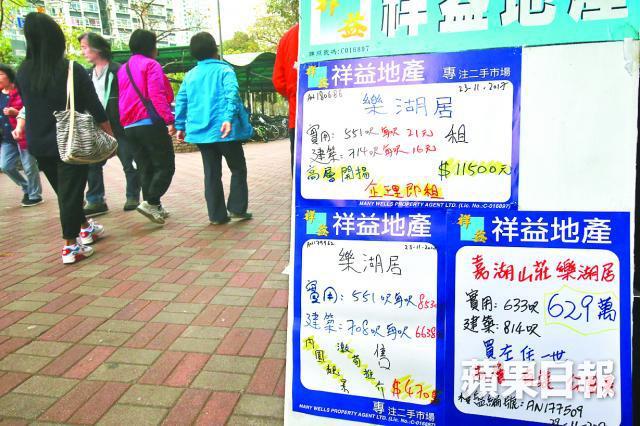 祥益地產
牌照號碼: C016897
祥益地產 專注二手市場
23-11-2017
樂湖居
實用: 551呎每呎21元 租
建築: 714呎每呎16元
高層開揚 $11500元
企理即租
MANY WELLS PROPERTY AGENT LTD. (Lic. No.:C-016897)
祥益地產
樂湖居
實用: 551呎每呎
建築: 708呎每呎6638
售
內園靚
激筍推介
專注二手市場
MANY WELLS PROPERTY AGENT LTD. (Lic. No.:C-016897)
祥益地產
嘉湖山莊樂湖居
實用: 633呎 629萬
建築: 814呎
買在任一世
AN177509
蘋果日報